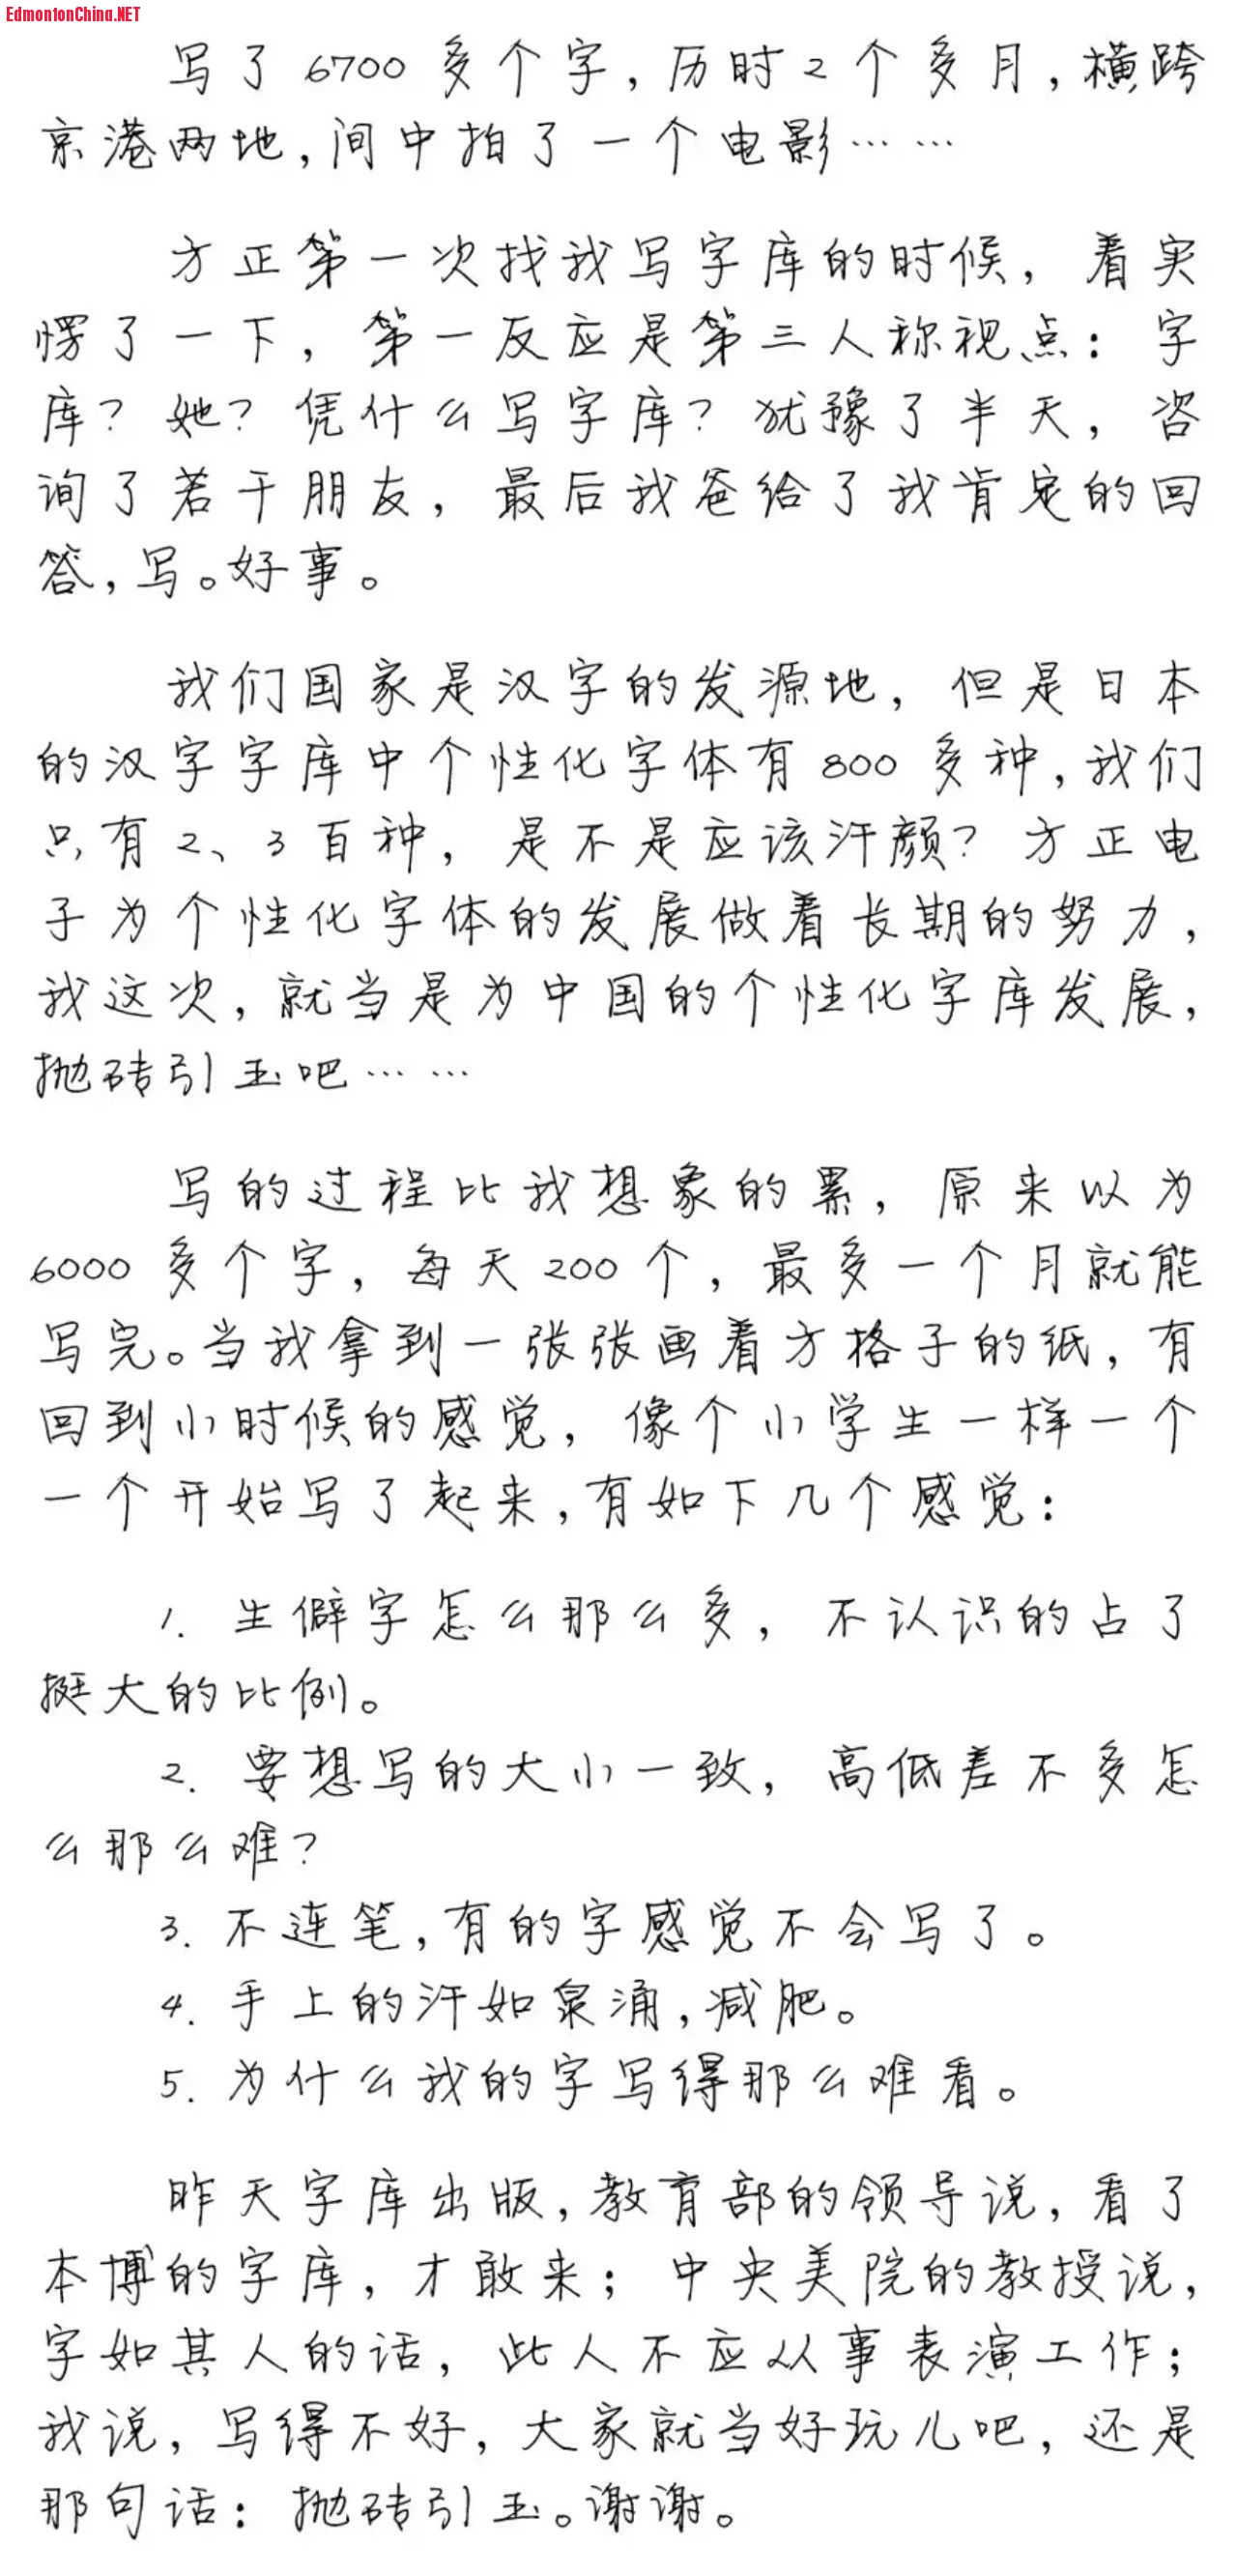 EdmontonChina.NET
写了6700多个字,历时2个多月,横跨
京港两地,间中拍了一个电影……
方正第一次找我写字库的时候,着实
愣了一下,第一反应是第三人称视点:字
库?她?凭什么写字库?犹豫了半天,咨
询了若干朋友,最后我爸给了我肯定的回
答,写。好事。
我们国家是汉字的发源地,但是日本
的汉字字库中个性化字体有800多种,我们
只有2、3百种,是不是应该汗颜?方正电
子为个性化字体的发展做着长期的努力,
我这次,就当是为中国的个性化字库发展,
抛砖引玉吧……
写的过程比我想象的累,原来以为
6000多个字,每天200个,最多一个月就能
写完。当我拿到一张张画着方格子的纸,有
回到小时候的感觉,像个小学生一样一个
一个开始写了起来,有如下几个感觉:
1. 生僻字怎么那么多,不认识的占了
挺大的比例。
2. 要想写的大小一致,高低差不多怎
么那么难?
3. 不连笔,有的字感觉不会写了。
4. 手上的汗如泉涌,减肥。
5. 为什么我的字写得那么难看。
昨天字库出版,教育部的领导说,看了
本博的字库,才敢来;中央美院的教授说,
字如其人的话,此人不应从事表演工作;
我说,写得不好,大家就当好玩儿吧,还是
那句话:抛砖引玉。谢谢。